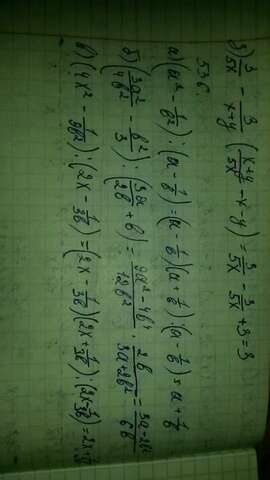 з) 3/5x - 3/(x+y) ((x+y)/5x - x - y) = 3/5x - 3/5x + 3 = 3
536.
а) (a² - 1/b²) : (a - 1/b) = (a - 1/b)(a + 1/b) : (a - 1/b) = a + 1/b
б) (3a²/4b² - b²/3) : (3a/2b + b) = (9a² - 4b⁴)/12b² · 2b/(3a+2b²) = (3a-2b/6b
в) (4x² - 1/9b²) : (2x - 1/3b) = (2x - 1/3b)(2x + 1/3b) : (2x - 1/3b) = 2x +